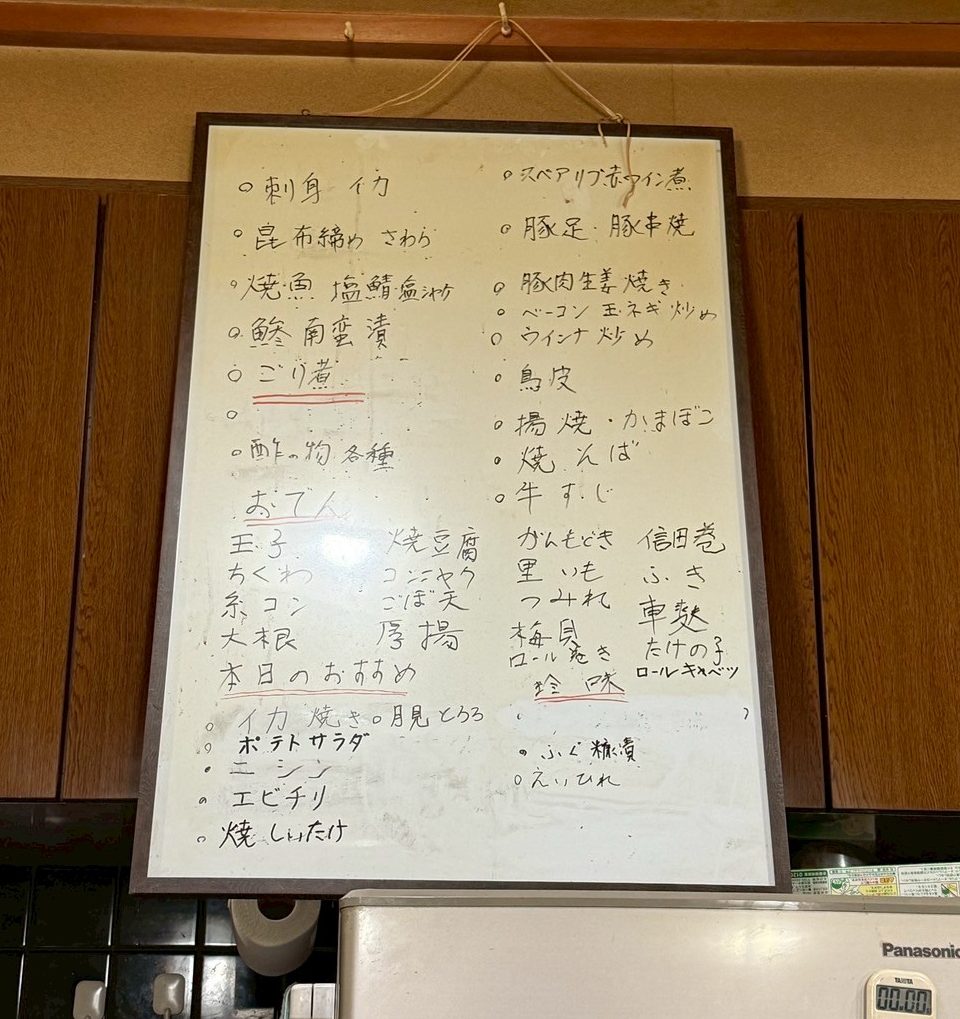 刺身 イカ
昆布締め さわら
焼魚 塩鯖 塩シャケ
鯵 南蛮漬
ごり煮
酢の物 各種
おでん
玉子 焼豆腐
ちくわ コンニャク
糸コン ごぼ天
大根 厚揚
本日のおすすめ
イカ焼き 月見とろろ
ポテトサラダ
ニシン
エビチリ
焼しいたけ
スペアリブ赤ワイン煮
豚足・豚串焼
豚肉生姜焼き
ベーコン 玉ネギ炒め
ウインナ炒め
鳥皮
揚焼・かまぼこ
焼そば
牛すじ
がんもどき 信田巻
里いも ふき
つみれ 車麩
梅貝 たけの子
ロール巻き ロールキャベツ
珍味
ふぐ糠漬
えいひれ
Panasonic
TANITA
00.00